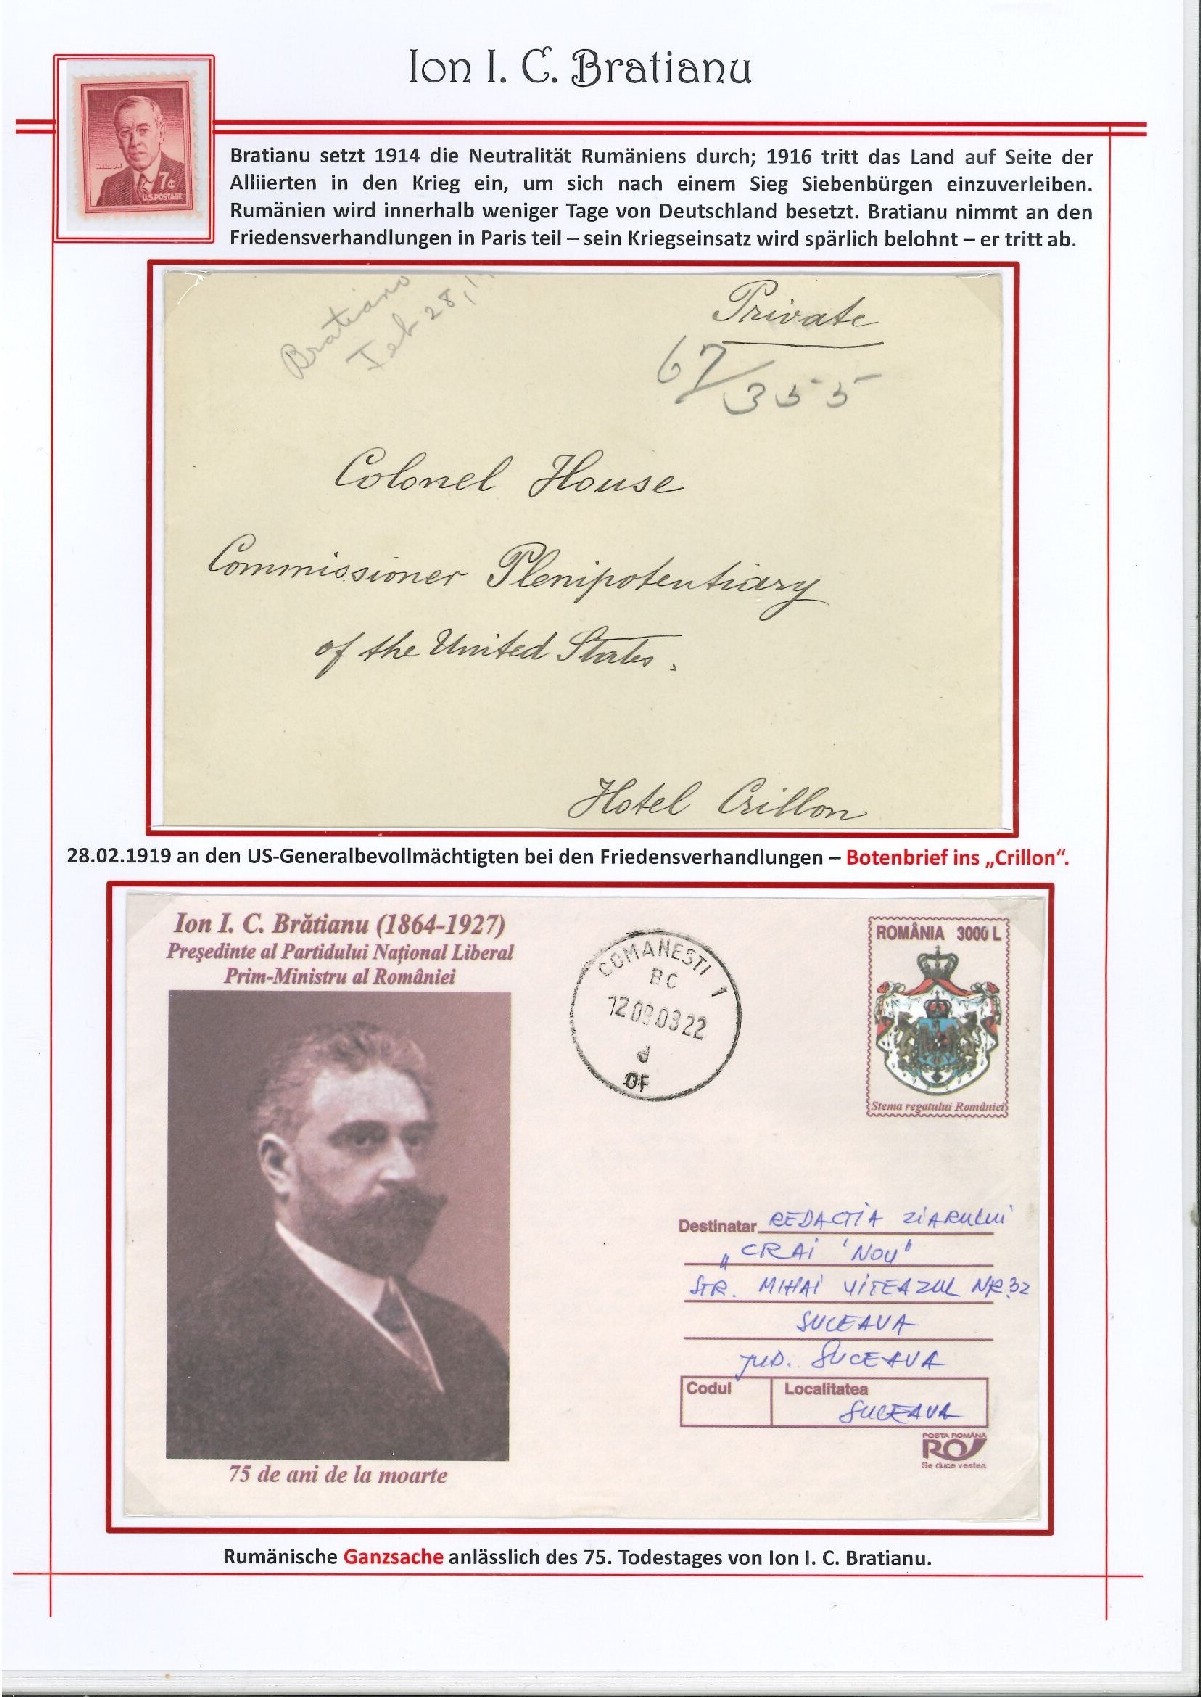 Ion I. C. Bratianu
7¢
U.S. POSTAGE
Bratianu setzt 1914 die Neutralität Rumäniens durch; 1916 tritt das Land auf Seite der
Alliierten in den Krieg ein, um sich nach einem Sieg Siebenbürgen einzuverleiben.
Rumänien wird innerhalb weniger Tage von Deutschland besetzt. Bratianu nimmt an den
Friedensverhandlungen in Paris teil – sein Kriegseinsatz wird spärlich belohnt – er tritt ab.
Bratiano
Feb 28,
Private
67/355
Colonel House
Commissioner Plenipotentiary
of the United States.
Hotel Crillon
28.02.1919 an den US-Generalbevollmächtigten bei den Friedensverhandlungen – Botenbrief ins „Crillon“.
Ion I. C. Brătianu (1864-1927)
Preşedinte al Partidului Naţional Liberal
Prim-Ministru al României
COMANESTI 1
BC
12 09.03 22
d
OF
ROMÂNIA 3000 L
Stema regatului României
Destinatar REDACTIA ZIARULUI
„CRAI NOU"
STR. MIHAI VITEAZUL NR. 32
SUCEAVA
JUD. SUCEAVA
Codul
Localitatea
SUCEAVA
POSTA ROMÂNA
RO
Se duce vestea
75 de ani de la moarte
Rumänische Ganzsache anlässlich des 75. Todestages von Ion I. C. Bratianu.